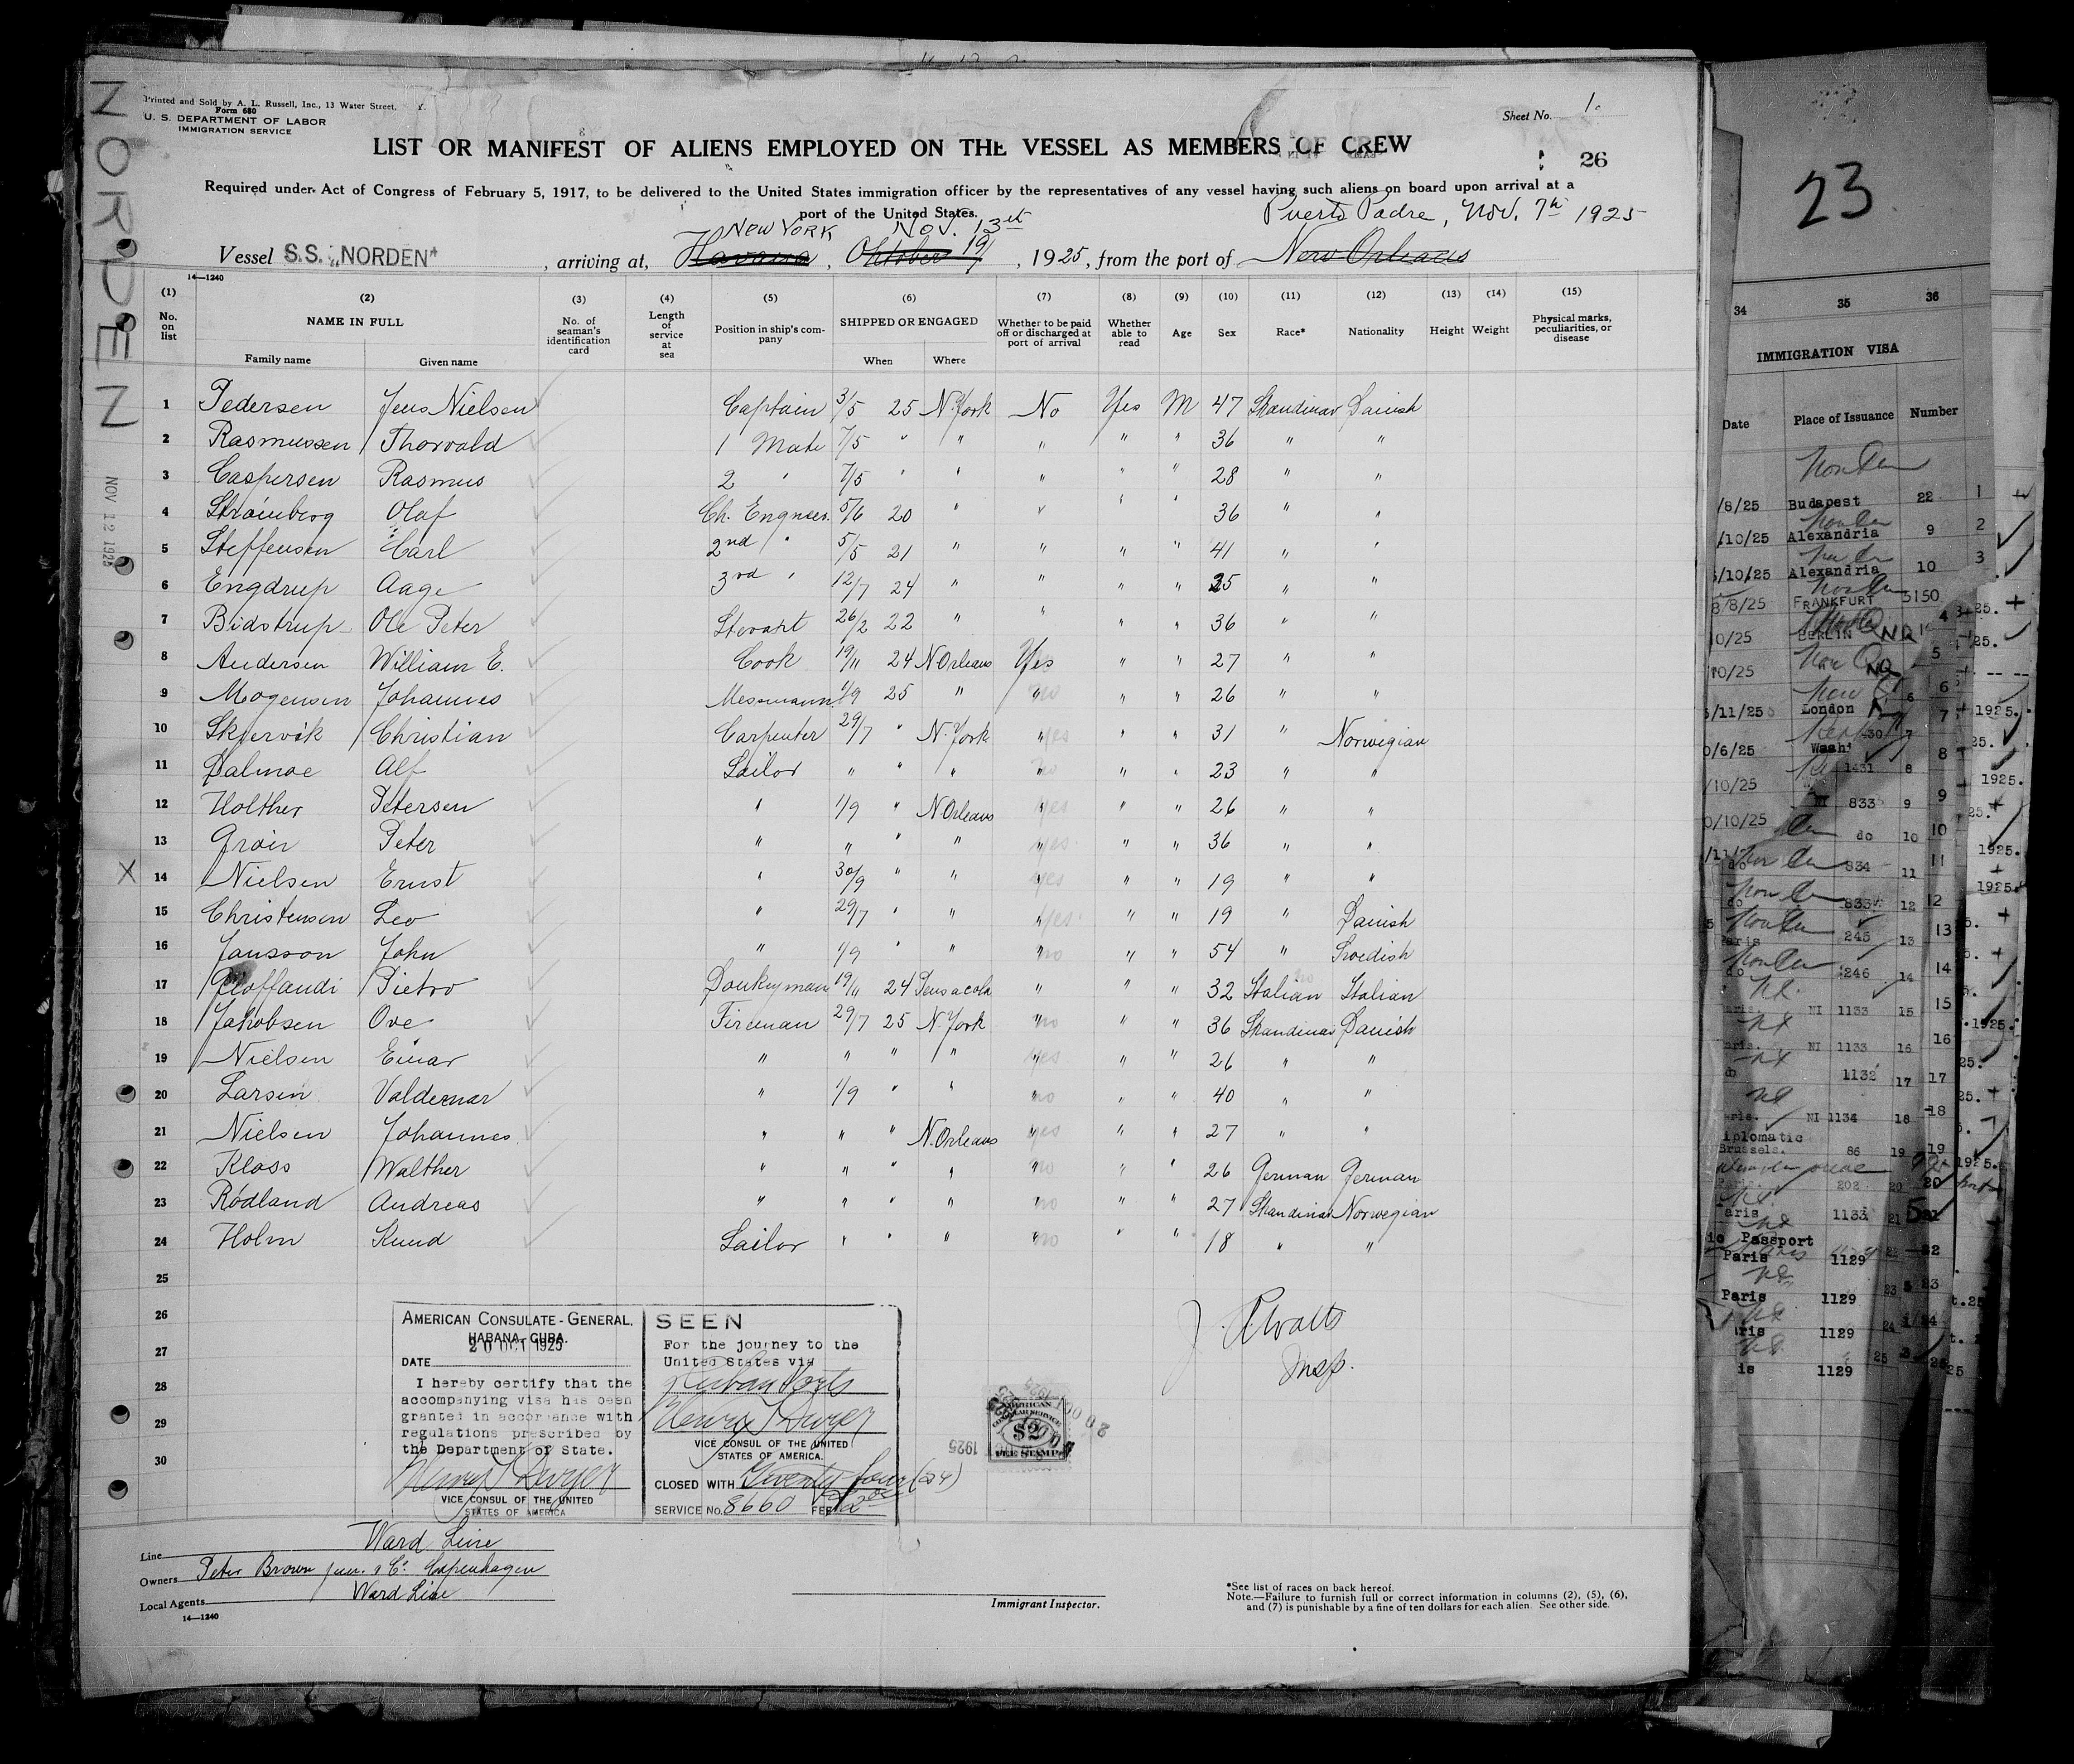 NORDEN
NOV 12 1925
Printed and Sold by A. L. Russell, Inc., 13 Water Street,
Form 680
U. S. DEPARTMENT OF LABOR
IMMIGRATION SERVICE
Sheet No. 1.
LIST OR MANIFEST OF ALIENS EMPLOYED ON THE VESSEL AS MEMBERS OF CREW
26
Required under Act of Congress of February 5, 1917, to be delivered to the United States immigration officer by the representatives of any vessel having such aliens on board upon arrival at a
port of the United States.
NEW YORK NOV. 13th Puerto Padre, Nov. 7th 1925
Vessel S.S. "NORDEN" , arriving at, Havana , Oktober 19/ , 1925, from the port of New Orleans
14—1240
(1) (2) (3) (4) (5) (6) (7) (8) (9) (10) (11) (12) (13) (14) (15)
No. on list NAME IN FULL Family name Given name No. of seaman's identification card Length of service at sea Position in ship's company SHIPPED OR ENGAGED When Where Whether to be paid off or discharged at port of arrival Whether able to read Age Sex Race* Nationality Height Weight Physical marks, peculiarities, or disease
1 Pedersen Jens Nielsen Captain 3/5 25 N.York No Yes M 47 Skandinav Danish
2 Rasmussen Thorvald 1 Mate 7/5 " " " " " 36 " "
3 Caspersen Rasmus 2 " 7/5 " " " " " 28 " "
4 Olaf Ch. Engneer. 5/6 20 " " " " 36 " "
5 Steffensen Carl 2nd " 5/5 21 " " " " 41 " "
6 Engdrup Aage 3rd " 12/7 24 " " " " 25 " "
7 Bidstrup Ole Peter Stevart 26/2 22 " " " " 36 " "
8 Andersen William E. Cook 19/11 24 N Orleans Yes " " 27 " "
9 Mogensen Johannes Messmann 1/9 25 " " no " " 26 " "
10 Skjervik Christian Carpenter 29/7 " N.York " yes " " 31 " Norwegian
11 Dalmoe Alf Sailor " " " " no " " 23 " "
12 Holther Petersen " 1/9 " N Orleans " yes " " 26 " "
13 Peter " " " " " yes " " 36 " "
X 14 Nielsen Ernst " 30/9 " " " yes " " 19 " "
15 Christensen Leo " 29/7 " " " yes " " 19 " Danish
16 Jansson John " 1/9 " " " no " " 54 " Svedish
17 Pietro Donkeyman 19/11 24 Pensacola " " " 32 Italian Italian
18 Jakobsen Ove Fireman 29/7 25 N.York " no " " 36 Skandinav Danish
19 Nielsen Einar " " " " " yes " " 26 " "
20 Larsen Valdemar " 1/9 " " " no " " 40 " "
21 Nielsen Johannes " " " N.Orleans " yes " " 27 " "
22 Klass Walther " " " " " no " " 26 German German
23 Rödland Andreas " " " " " no " " 27 Skandinav Norwegian
24 Holm Knud Sailor " " " " no " " 18 " "
25
26
27
28
29
30
AMERICAN CONSULATE-GENERAL,
HABANA, CUBA.
20 OCT 1925
DATE
I hereby certify that the
accompanying visa has been
granted in accordance with
regulations prescribed by
the Department of State.
Henry T Dwyer
VICE CONSUL OF THE UNITED
STATES OF AMERICA
SEEN
For the journey to the
United States via
Cuban Ports
Henry T Dwyer
VICE CONSUL OF THE UNITED
STATES OF AMERICA.
CLOSED WITH Twenty four (24)
SERVICE No. 8660 FEE $2.00
AMERICAN
CONSULAR SERVICE
$2
FEE STAMP
1925
Insp.
Line Ward Line
Owners Peter Brown jun. & Co. Copenhagen
Local Agents Ward Line
14—1240
Immigrant Inspector.
*See list of races on back hereof.
Note.—Failure to furnish full or correct information in columns (2), (5), (6),
and (7) is punishable by a fine of ten dollars for each alien. See other side.
23
34 35 36
IMMIGRATION VISA
Date Place of Issuance Number
/8/25 Budapest 22 1
/10/25 Alexandria 9 2
/10/25 Alexandria 10 3
8/8/25 FRANKFURT 5150 4
0/25 BERLIN 5
/10/25 6
/11/25 London 7
0/6/25 Wash 8
/10/25 1431 8
833 9
0/10/25 do 10
do 834 11
do 833 12
Paris 245 13
do 246 14
NI 1133 15
NI 1133 16
do 1132 17
NI 1134 18
Diplomatic
Brussels. 86 19
Paris. 202 20
Paris 1133 21
Passport
Paris 1129
Paris 1129 23
1129 24
1129 25